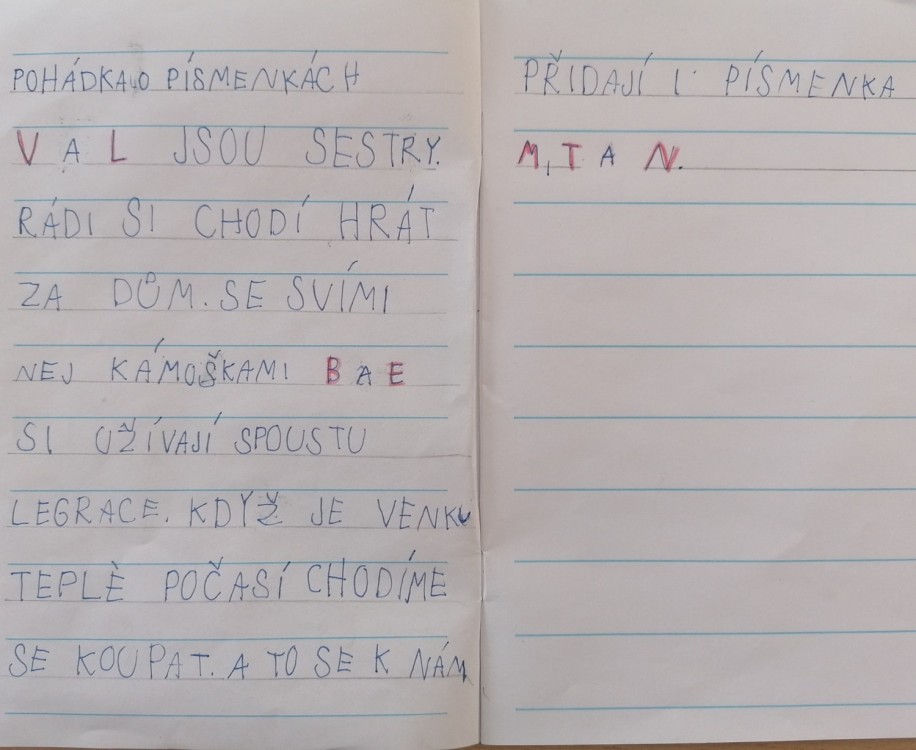 POHÁDKA O PÍSMENKÁCH
V A L JSOU SESTRY.
RÁDI SI CHODÍ HRÁT
ZA DŮM. SE SVÍMI
NEJ KÁMOŠKAMI B A E
SI UŽÍVAJÍ SPOUSTU
LEGRACE. KDYŽ JE VENKU
TEPLÈ POČASÍ CHODÍME
SE KOUPAT. A TO SE K NÁM
PŘIDAJÍ I PÍSMENKA
M, T A N.